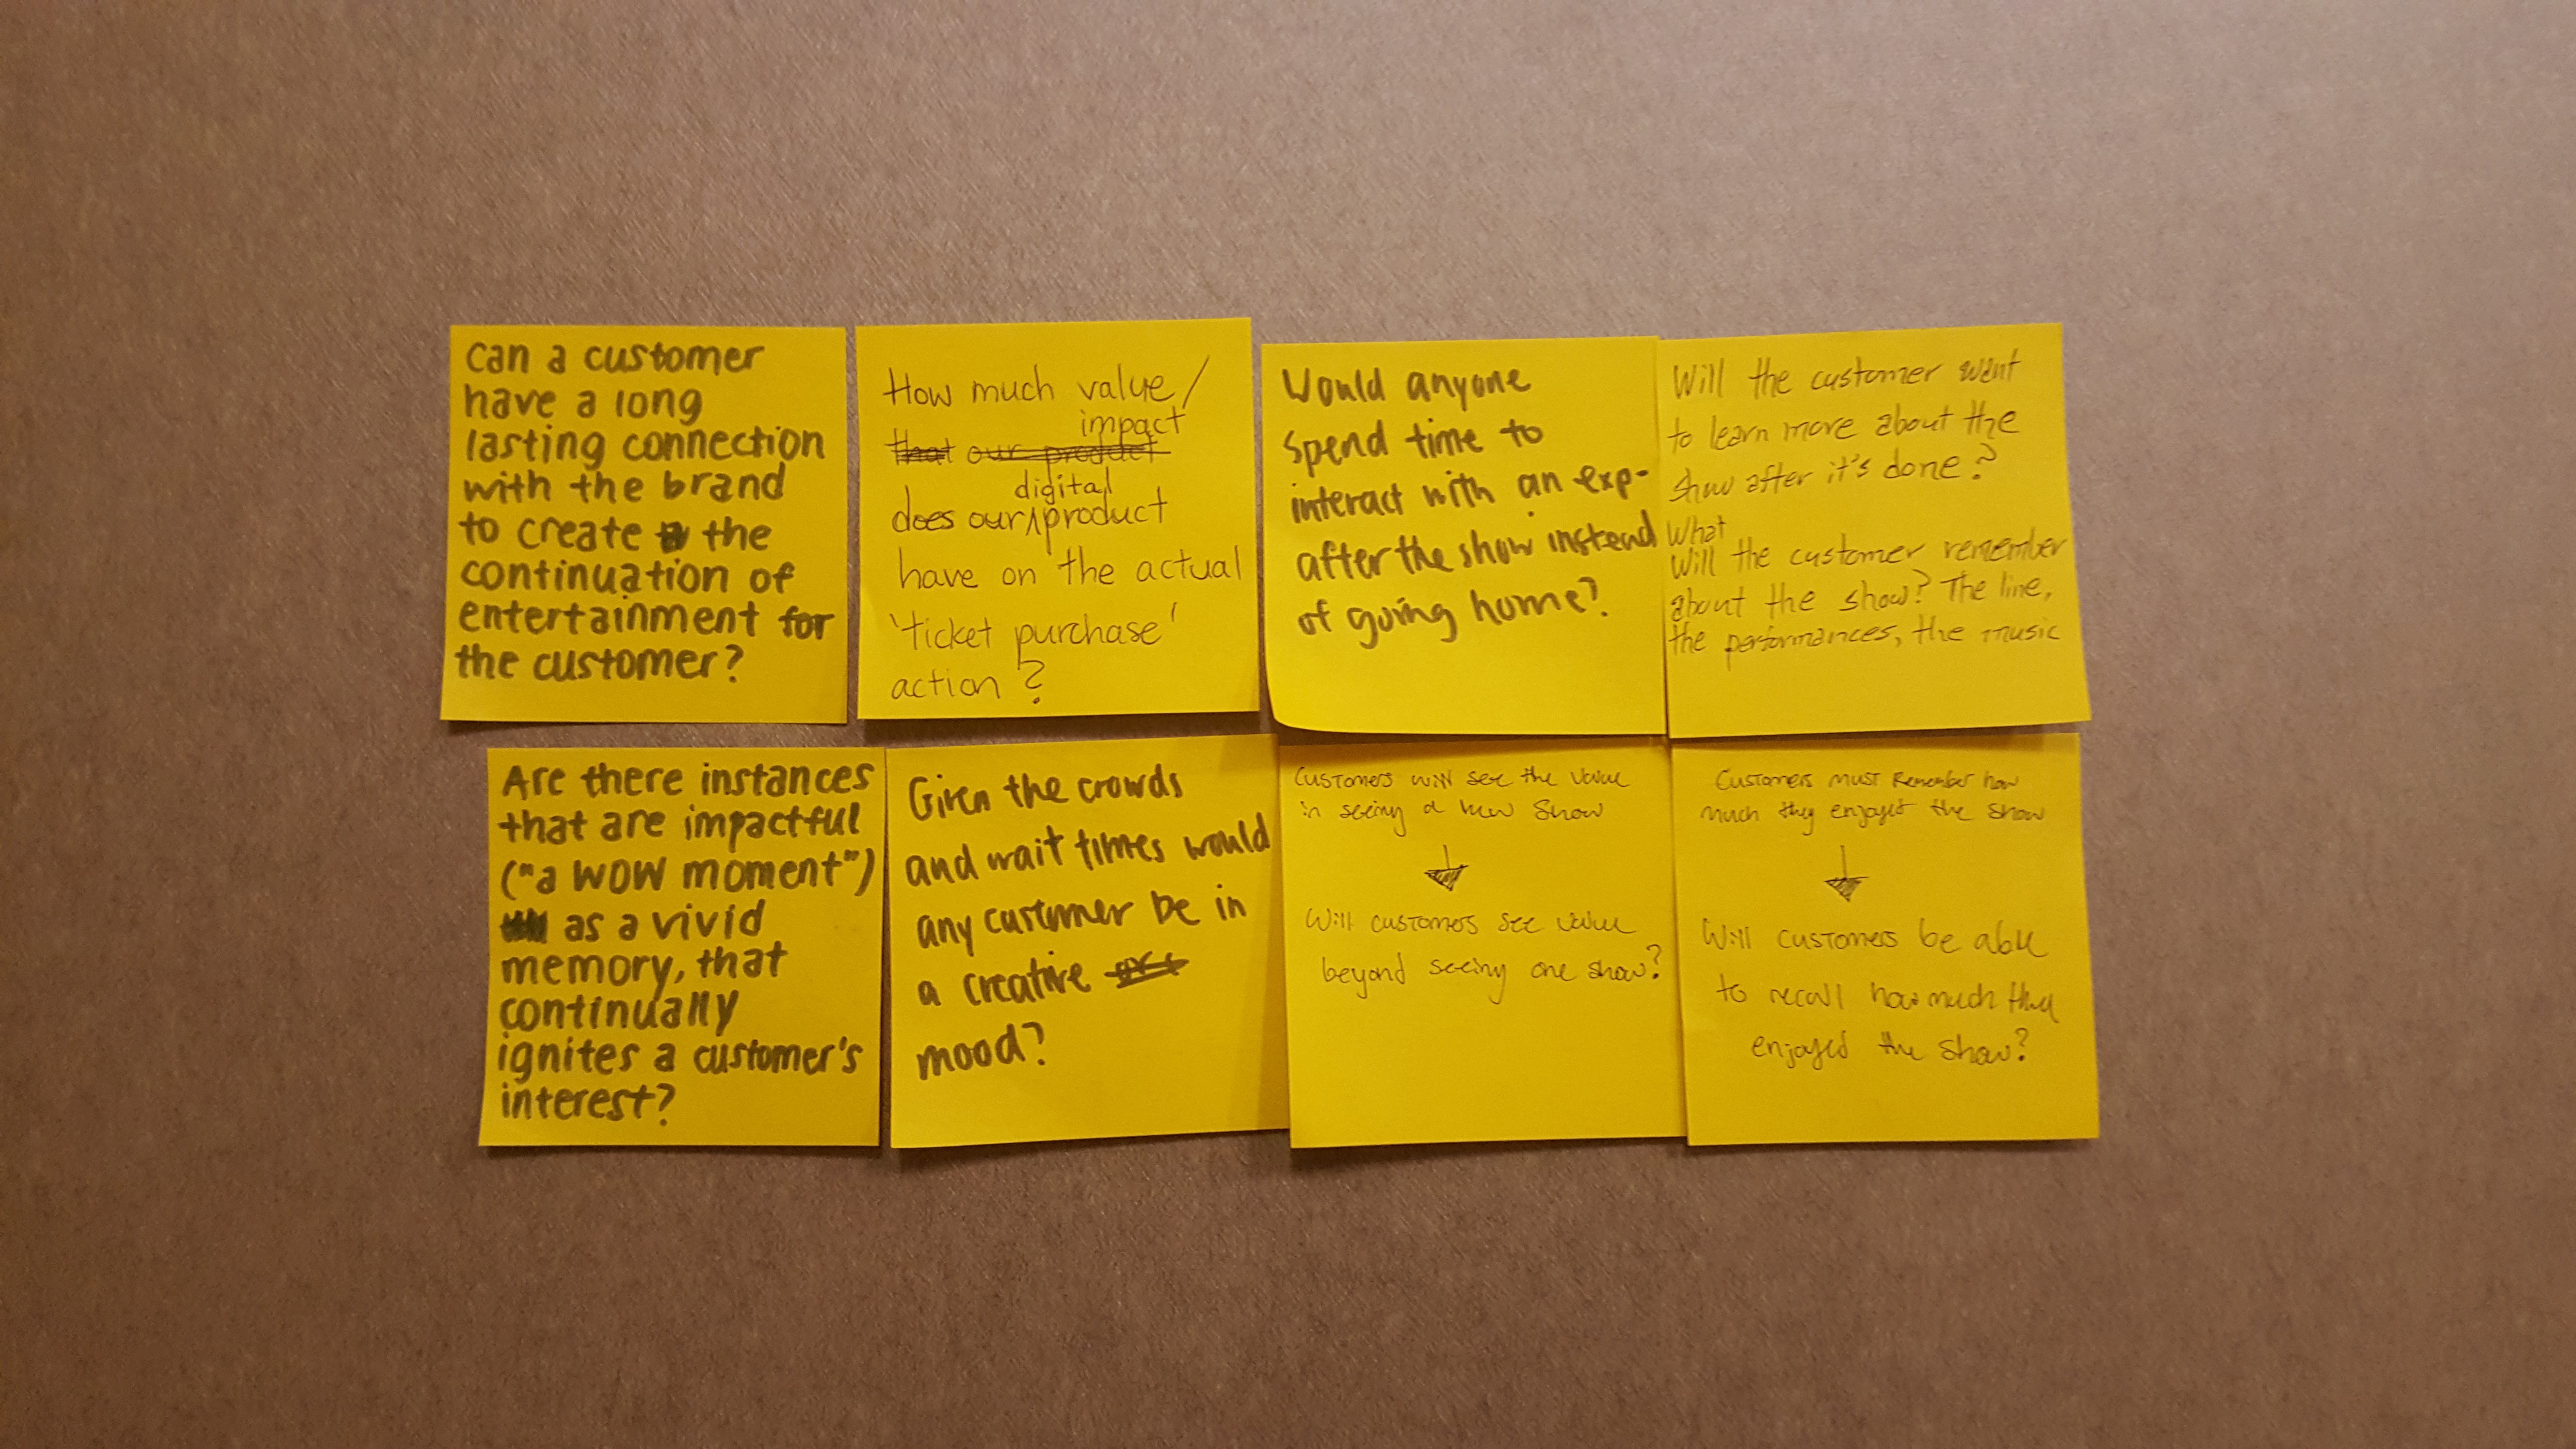 can a customer
have a long
lasting connection
with the brand
to create the
continuation of
entertainment for
the customer?
How much value/
impact
that our product
digital
does our product
have on the actual
'ticket purchase'
action?
Would anyone
spend time to
interact with an exp-
after the show instead
of going home?
Will the customer want
to learn more about the
show after it's done?
What
Will the customer remember
about the show? The line,
the performances, the music
Are there instances
that are impactful
("a WOW moment")
as a vivid
memory, that
continually
ignites a customer's
interest?
Given the crowds
and wait times would
any customer be in
a creative
mood?
Customers will see the value
in seeing a new show
Will customers see value
beyond seeing one show?
Customers must remember how
much they enjoyed the show
Will customers be able
to recall how much they
enjoyed the show?